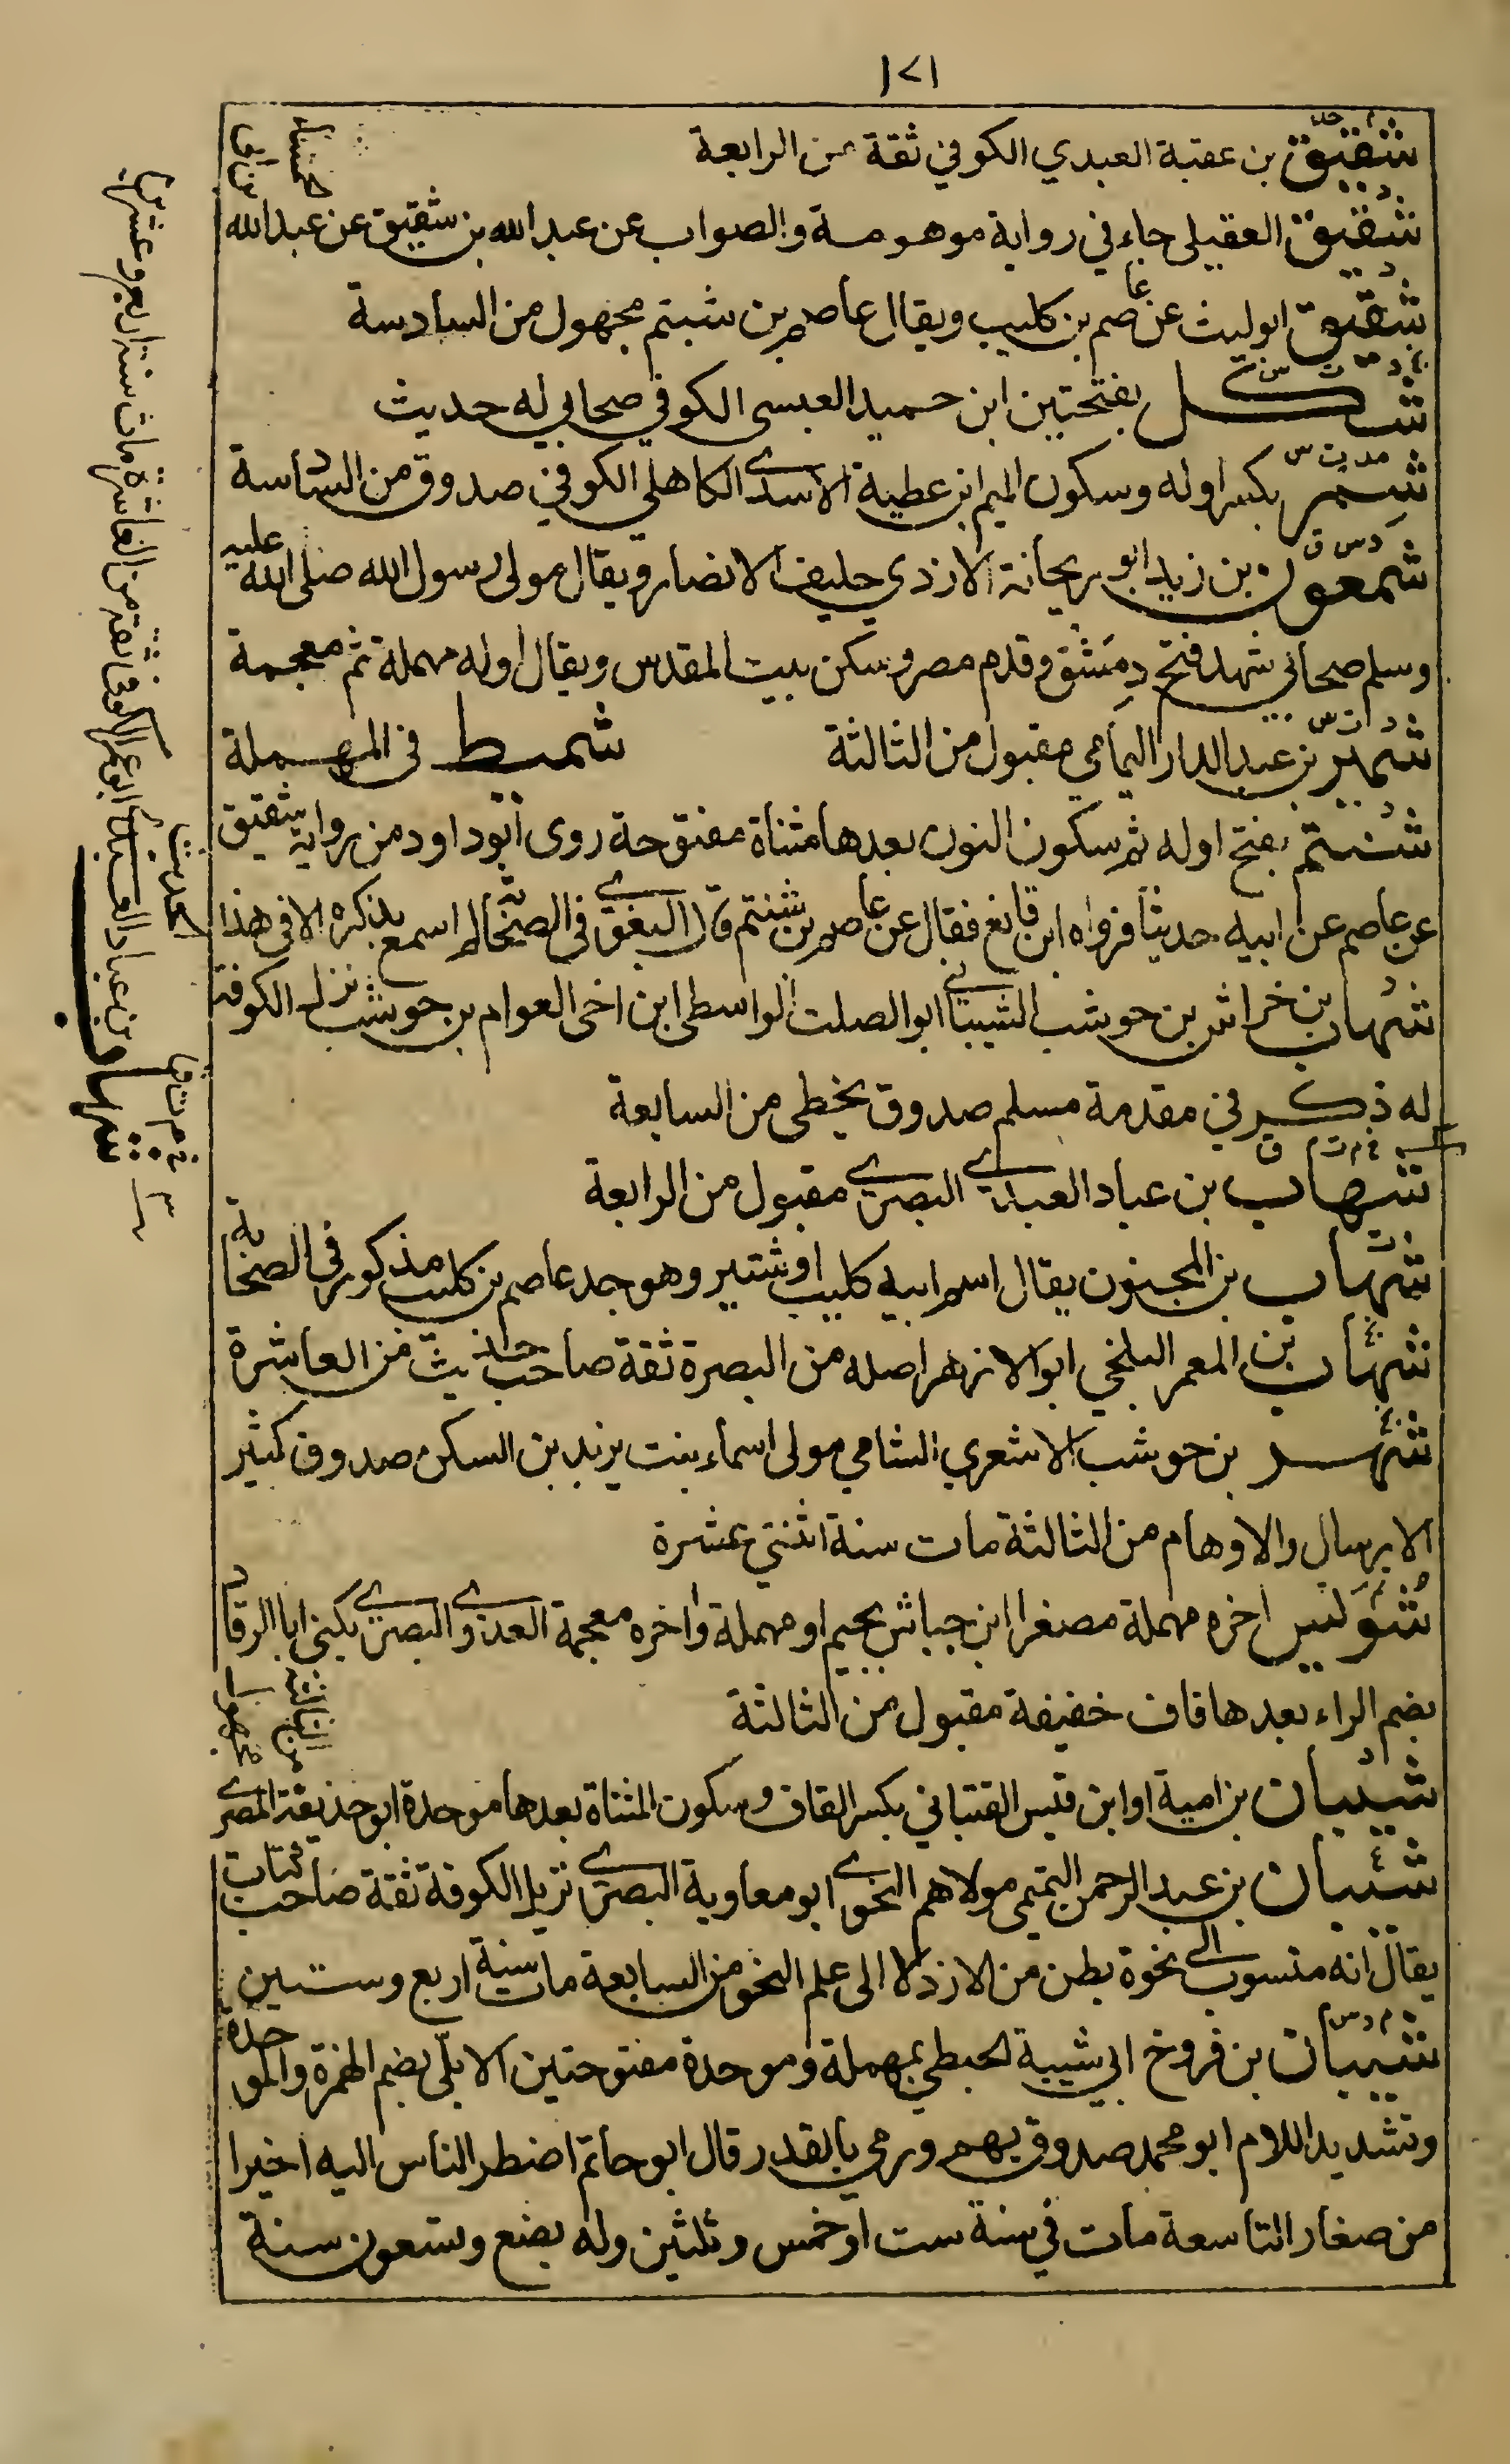 ١٧١
شقيق بن عقبة العبدي الكوفي ثقة من الرابعة
شقيق العقيلي جاء في رواية موهومة والصواب عن عبد الله بن شقيق عن عبد الله
شقيق ابو ليث عن عاصم بن كليب ويقال عاصم بن شبتم مجهول من السادسة
شكل بفتحتين ابن حميد العبسي الكوفي صحابي له حديث
شمر بكسر اوله وسكون الميم ابن عطية الاسدي الكاهلي الكوفي صدوق من السادسة
شمعون بن زيد ابو ريحانة الازدي حليف الانصار ويقال مولى رسول الله صلى الله عليه
وسلم صحابي شهد فتح دمشق وقدم مصر وسكن بيت المقدس ويقال اوله مهملة ثم معجمة
شمير بن عبد الدار اليمامي مقبول من الثالثة شميط في المهملة
شنتم بفتح اوله ثم سكون النون بعدها مثناة مفتوحة روى ابو داود من رواية شقيق
عن عاصم عن ابيه حديثا فرواه ابن قانع فقال عن عاصم بن شنتم قال البغوي في الصحابة لم اسمع بذكره الا في هذا
الحديث
شهاب بن خراش بن حوشب الشيباني ابو الصلت الواسطي ابن اخي العوام بن حوشب نزل الكوفة
له ذكر في مقدمة مسلم صدوق يخطي من السابعة
شهاب بن عباد العبدي البصري مقبول من الرابعة
شهاب بن المجنون يقال اسم ابيه كليب او شتير وهو جد عاصم بن كليب مذكور في الصحابة
شهاب بن المعمر البلخي ابو الازهر اصله من البصرة ثقة صاحب حديث من العاشرة
شهر بن حوشب الاشعري الشامي مولى اسماء بنت يزيد بن السكن صدوق كثير
الارسال والاوهام من الثالثة مات سنة اثنتي عشرة
شويس اخره مهملة مصغرا ابن جباش بجيم او مهملة واخره معجمة العدوي البصري يكنى ابا الرقاد
بضم الراء بعدها قاف خفيفة مقبول من الثالثة
شيبان بن امية او ابن قيس القتباني بكسر القاف وسكون المثناة بعدها موحدة ابو حذيفة المصري
مجهول من الثالثة
شيبان بن عبد الرحمن التميمي مولاهم النحوي ابو معاوية البصري نزيل الكوفة ثقة صاحب كتاب
يقال انه منسوب الى نحوة بطن من الازد لا الى علم النحو من السابعة مات سنة اربع وستين
شيبان بن فروخ ابي شيبة الحبطي بمهملة وموحدة مفتوحتين الابلي بضم الهمزة والموحدة
وتشديد اللام ابو محمد صدوق يهم ورمي بالقدر قال ابو حاتم اضطر الناس اليه اخيرا
من صغار التاسعة مات في سنة ست او خمس وثلثين وله بضع وتسعون سنة
شهاب بن عباد العبدي ابو عمر الكوفي ثقة من العاشرة مات سنة اربع وعشرين